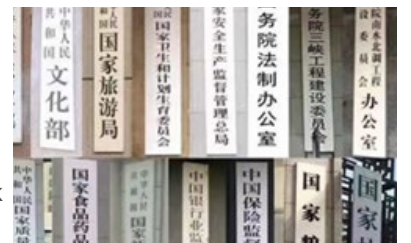 中华人民共和国
文化部
国家旅游局
国家卫生和计划生育委员会
家安全生产监督管理总局
务院法制办公室
务院三峡工程建设委员会
院南水北调工程
设委员会
办公室
国家质量
国家食品药品
国家
中国银行业监
中国保险监督
国家粮
国家